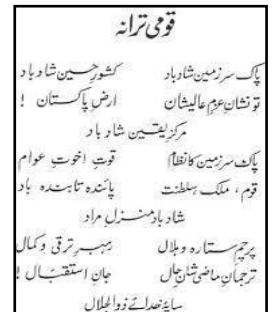 قومی ترانہ
پاک سرزمین شاد باد کشورِ حسین شاد باد
تو نشانِ عزمِ عالیشان ارضِ پاکستان !
مرکزِ یقین شاد باد
پاک سرزمین کا نظام قوتِ اخوتِ عوام
قوم ، ملک ، سلطنت پائندہ تابندہ باد
شاد باد منزلِ مراد
پرچمِ ستارہ و ہلال رہبرِ ترقی و کمال
ترجمانِ ماضی شانِ حال جانِ استقبال !
سایۂ خدائے ذوالجلال